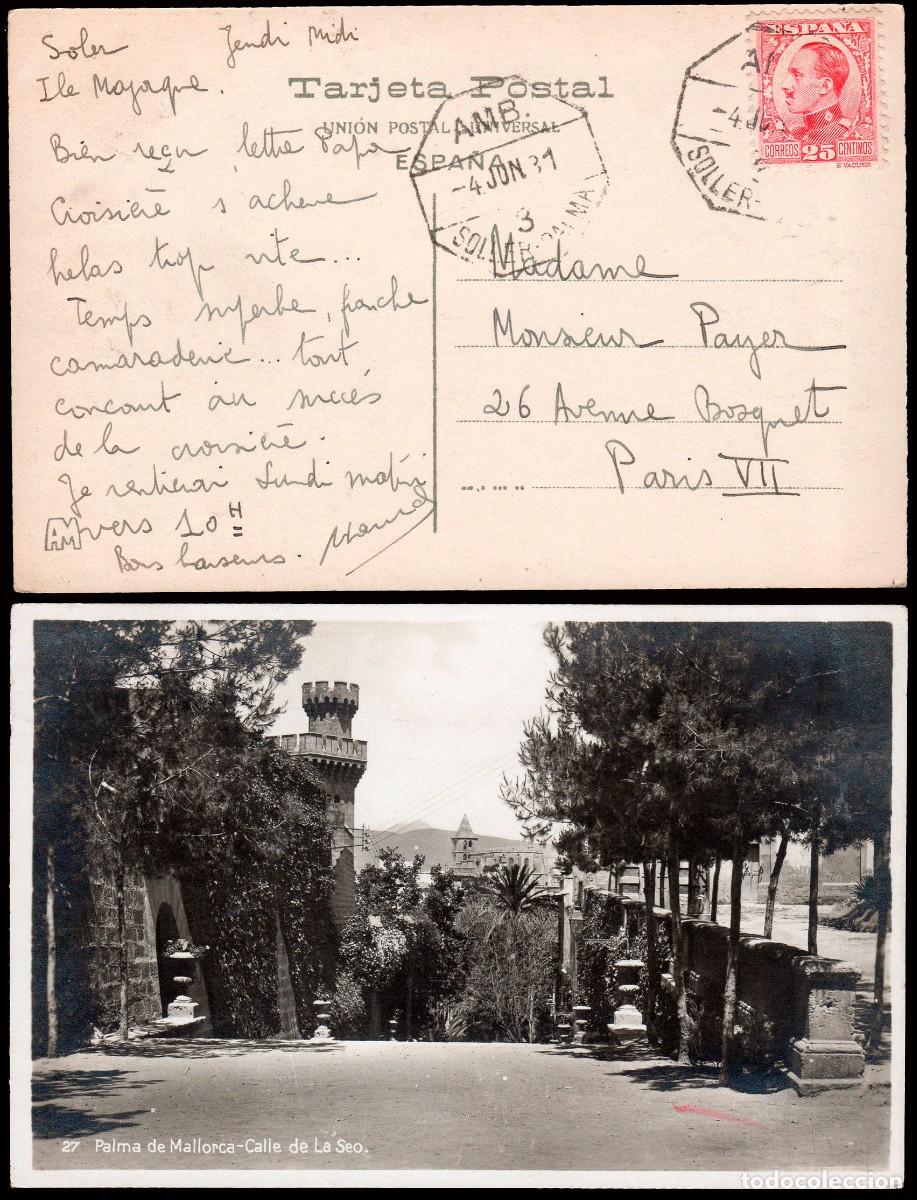 Soler Jeudi Midi
Ile Majorque.
Tarjeta Postal
UNIÓN POSTAL UNIVERSAL
ESPAÑA
AMB.
-4 JUN 31
3
SOLLER-PALMA
-4 JU
SOLLER-
ESPAÑA
CORREOS 25 CENTIMOS
E. VAQUER
Bien reçu lettre Papa
Croisière s'achève
helas trop vite...
Temps superbe, franche
camaraderie... tout
concourt au succès
de la croisière.
Je rentrerai Lundi matin
vers 10H
Bons baisers.
AM
Madame
Monsieur Payer
26 Avenue Bosquet
Paris VII
27 Palma de Mallorca-Calle de La Seo.
todocoleccion